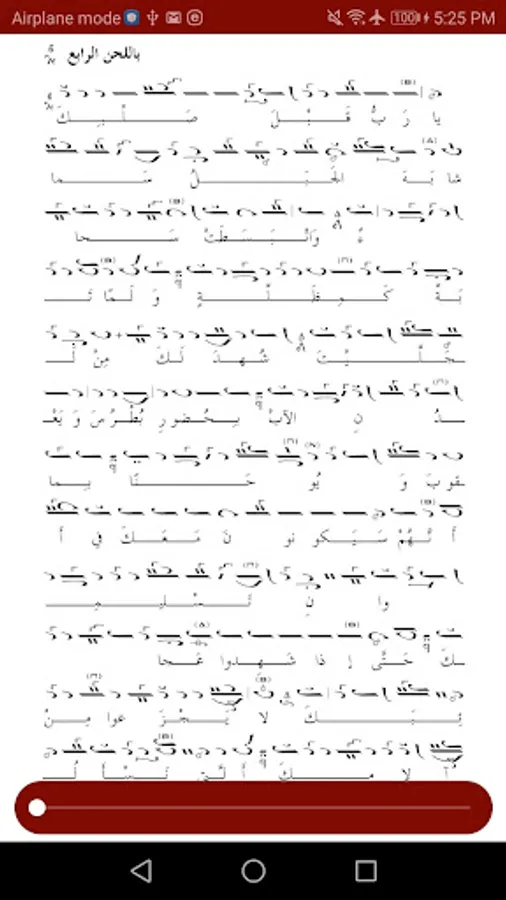 Airplane mode 100 5:25 PM
باللحن الرابع
يا رَبُّ قَبْلَ صَلْبِكَ
شابَهَ الجَبَلُ سَما
ءً وَانْبَسَطَتْ سَحا
بَةٌ كَمِظَلَّةٍ وَلَمّا تَـ
ـجَلَّيْتَ شُهِدَ لَكَ مِنْ لَـ
ـدُنِ الآبِ بِحُضورِ بُطْرُسَ وَيَعْـ
ـقوبَ وَيُوحَنَّا بِما
أَنَّهُمْ سَيَكونونَ مَعَكَ في أَ
وانِ تَسْليمِـ
ـكَ حَتَّى إِذا شَهِدوا عَجا
ئِبَكَ لا يَجْزَعوا مِنْ
آلامِكَ